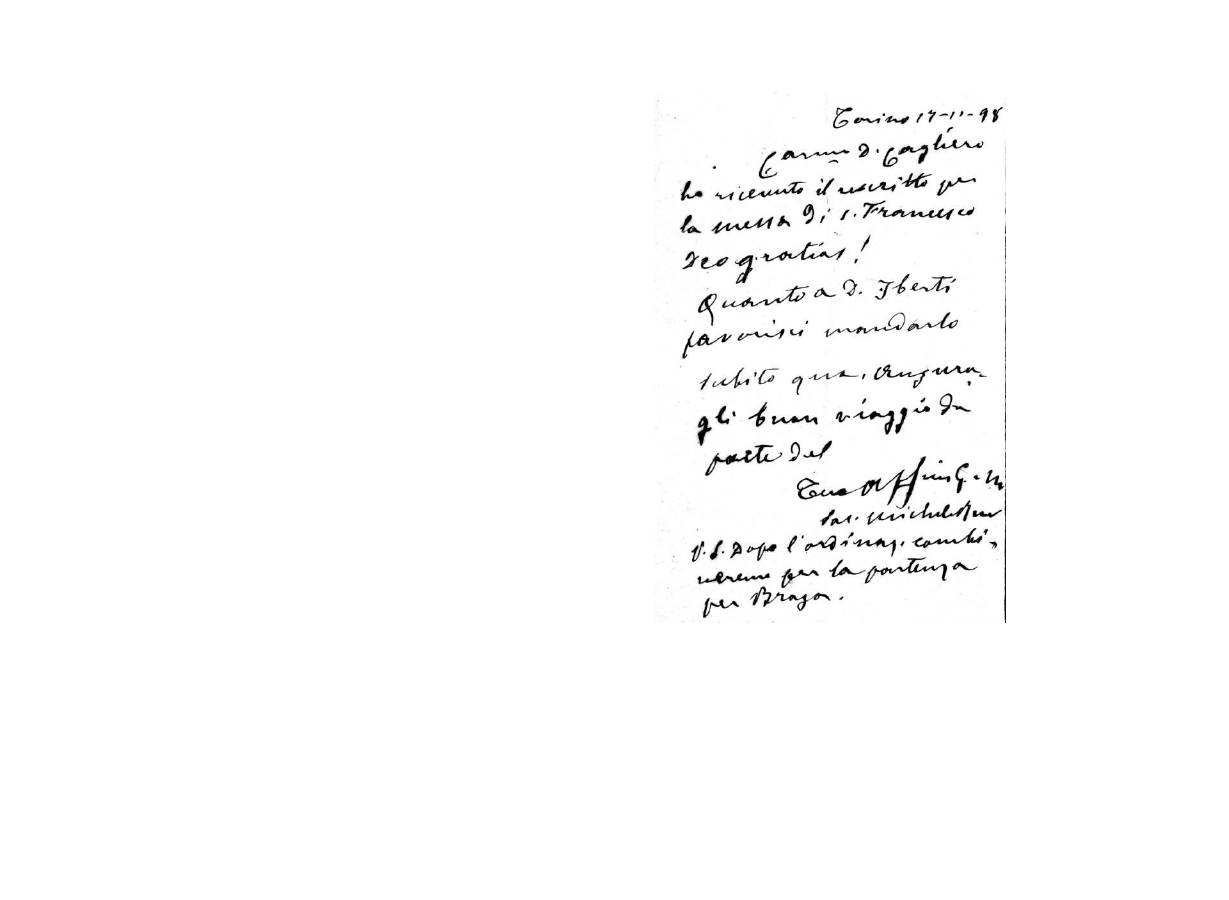 Torino 17-11-98
Carmo D. Cagliero
ho ricevuto il rescritto per
la messa di s. Francesco
Deo gratias!
Quanto a D. Iberti
favorisci mandarlo
subito qua. Augura-
gli buon viaggio da
parte del
Tuo affmo G. e M
Sac. Michele Rua
P.S. Dopo l'ordinaz. combi-
neremo per la partenza
per Braga.